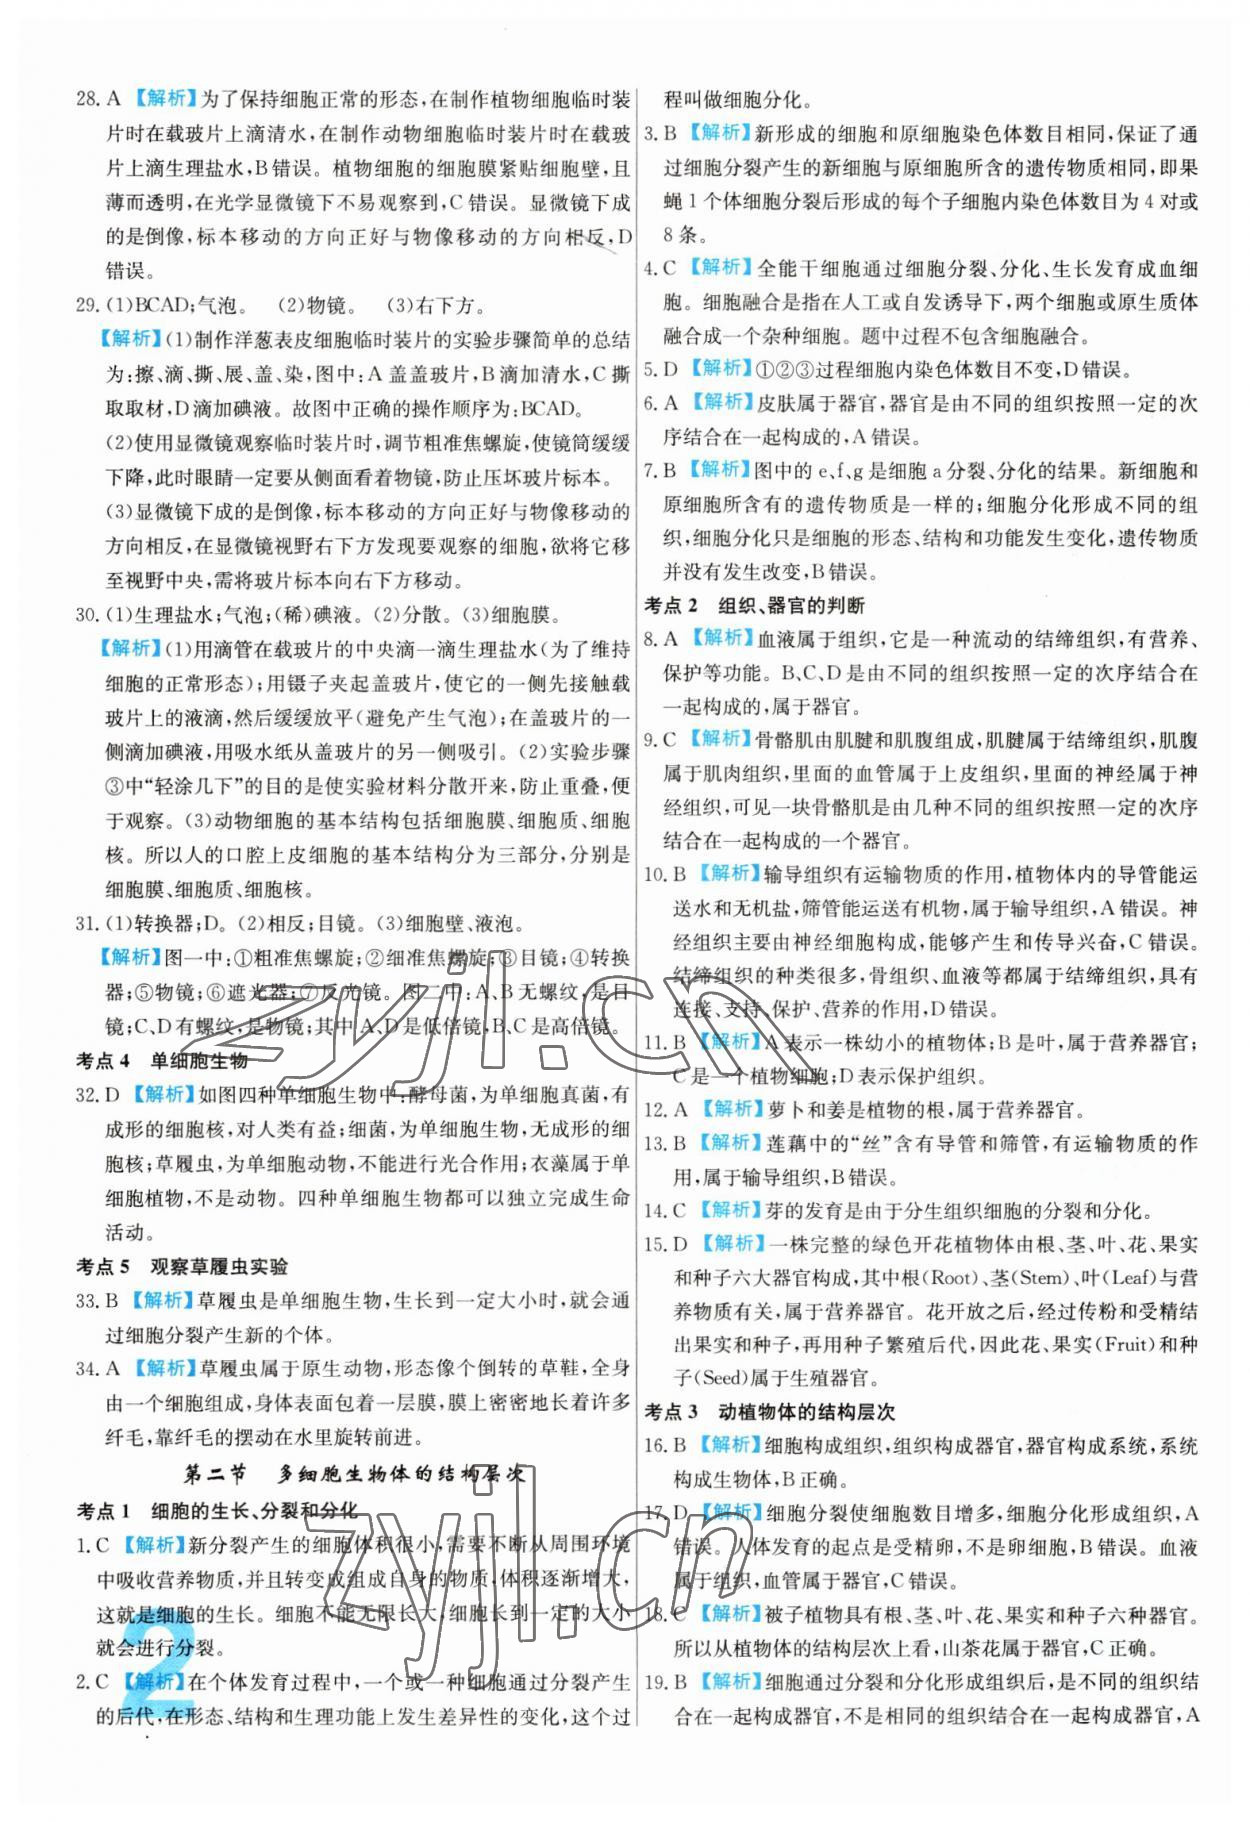 28. A 【解析】为了保持细胞正常的形态,在制作植物细胞临时装
片时在载玻片上滴清水,在制作动物细胞临时装片时在载玻
片上滴生理盐水,B错误。植物细胞的细胞膜紧贴细胞壁,且
薄而透明,在光学显微镜下不易观察到,C错误。显微镜下成
的是倒像,标本移动的方向正好与物像移动的方向相反,D
错误。
29. (1)BCAD;气泡。 (2)物镜。 (3)右下方。
【解析】(1)制作洋葱表皮细胞临时装片的实验步骤简单的总结
为:擦、滴、撕、展、盖、染,图中:A盖盖玻片,B滴加清水,C撕
取取材,D滴加碘液。故图中正确的操作顺序为:BCAD。
(2)使用显微镜观察临时装片时,调节粗准焦螺旋,使镜筒缓缓
下降,此时眼睛一定要从侧面看着物镜,防止压坏玻片标本。
(3)显微镜下成的是倒像,标本移动的方向正好与物像移动的
方向相反,在显微镜视野右下方发现要观察的细胞,欲将它移
至视野中央,需将玻片标本向右下方移动。
30. (1)生理盐水;气泡;(稀)碘液。(2)分散。(3)细胞膜。
【解析】(1)用滴管在载玻片的中央滴一滴生理盐水(为了维持
细胞的正常形态);用镊子夹起盖玻片,使它的一侧先接触载
玻片上的液滴,然后缓缓放平(避免产生气泡);在盖玻片的一
侧滴加碘液,用吸水纸从盖玻片的另一侧吸引。(2)实验步骤
③中“轻涂几下”的目的是使实验材料分散开来,防止重叠,便
于观察。(3)动物细胞的基本结构包括细胞膜、细胞质、细胞
核。所以人的口腔上皮细胞的基本结构分为三部分,分别是
细胞膜、细胞质、细胞核。
31. (1)转换器;D。(2)相反;目镜。(3)细胞壁、液泡。
【解析】图一中:①粗准焦螺旋;②细准焦螺旋;③目镜;④转换
器;⑤物镜;⑥遮光器;⑦反光镜。图二中:A、B无螺纹,是目
镜;C、D有螺纹,是物镜;其中A、D是低倍镜,B、C是高倍镜。
考点4 单细胞生物
32. D 【解析】如图四种单细胞生物中:酵母菌,为单细胞真菌,有
成形的细胞核,对人类有益;细菌,为单细胞生物,无成形的细
胞核;草履虫,为单细胞动物,不能进行光合作用;衣藻属于单
细胞植物,不是动物。四种单细胞生物都可以独立完成生命
活动。
考点5 观察草履虫实验
33. B 【解析】草履虫是单细胞生物,生长到一定大小时,就会通
过细胞分裂产生新的个体。
34. A 【解析】草履虫属于原生动物,形态像个倒转的草鞋,全身
由一个细胞组成,身体表面包着一层膜,膜上密密地长着许多
纤毛,靠纤毛的摆动在水里旋转前进。
第二节 多细胞生物体的结构层次
考点1 细胞的生长、分裂和分化
1. C 【解析】新分裂产生的细胞体积很小,需要不断从周围环境
中吸收营养物质,并且转变成组成自身的物质,体积逐渐增大,
这就是细胞的生长。细胞不能无限长大,细胞生长到一定大小
就会进行分裂。
2. C 【解析】在个体发育过程中,一个或一种细胞通过分裂产生
的后代,在形态、结构和生理功能上发生差异性的变化,这个过
程叫做细胞分化。
3. B 【解析】新形成的细胞和原细胞染色体数目相同,保证了通
过细胞分裂产生的新细胞与原细胞所含的遗传物质相同,即果
蝇1个体细胞分裂后形成的每个子细胞内染色体数目为4对或
8条。
4. C 【解析】全能干细胞通过细胞分裂、分化、生长发育成血细
胞。细胞融合是指在人工或自发诱导下,两个细胞或原生质体
融合成一个杂种细胞。题中过程不包含细胞融合。
5. D 【解析】①②③过程细胞内染色体数目不变,D错误。
6. A 【解析】皮肤属于器官,器官是由不同的组织按照一定的次
序结合在一起构成的,A错误。
7. B 【解析】图中的e、f、g是细胞a分裂、分化的结果。新细胞和
原细胞所含有的遗传物质是一样的;细胞分化形成不同的组
织,细胞分化只是细胞的形态、结构和功能发生变化,遗传物质
并没有发生改变,B错误。
考点2 组织、器官的判断
8. A 【解析】血液属于组织,它是一种流动的结缔组织,有营养、
保护等功能。B、C、D是由不同的组织按照一定的次序结合在
一起构成的,属于器官。
9. C 【解析】骨骼肌由肌腱和肌腹组成,肌腱属于结缔组织,肌腹
属于肌肉组织,里面的血管属于上皮组织,里面的神经属于神
经组织,可见一块骨骼肌是由几种不同的组织按照一定的次序
结合在一起构成的一个器官。
10. B 【解析】输导组织有运输物质的作用,植物体内的导管能运
送水和无机盐,筛管能运送有机物,属于输导组织,A错误。神
经组织主要由神经细胞构成,能够产生和传导兴奋,C错误。
结缔组织的种类很多,骨组织、血液等都属于结缔组织,具有
连接、支持、保护、营养的作用,D错误。
11. B 【解析】A表示一株幼小的植物体;B是叶,属于营养器官;
C是一个植物细胞;D表示保护组织。
12. A 【解析】萝卜和姜是植物的根,属于营养器官。
13. B 【解析】莲藕中的“丝”含有导管和筛管,有运输物质的作
用,属于输导组织,B错误。
14. C 【解析】芽的发育是由于分生组织细胞的分裂和分化。
15. D 【解析】一株完整的绿色开花植物体由根、茎、叶、花、果实
和种子六大器官构成,其中根(Root)、茎(Stem)、叶(Leaf)与营
养物质有关,属于营养器官。花开放之后,经过传粉和受精结
出果实和种子,再用种子繁殖后代,因此花、果实(Fruit)和种
子(Seed)属于生殖器官。
考点3 动植物体的结构层次
16. B 【解析】细胞构成组织,组织构成器官,器官构成系统,系统
构成生物体,B正确。
17. D 【解析】细胞分裂使细胞数目增多,细胞分化形成组织,A
错误。人体发育的起点是受精卵,不是卵细胞,B错误。血液
属于组织,血管属于器官,C错误。
18. C 【解析】被子植物具有根、茎、叶、花、果实和种子六种器官。
所以从植物体的结构层次上看,山茶花属于器官,C正确。
19. B 【解析】细胞通过分裂和分化形成组织后,是不同的组织结
合在一起构成器官,不是相同的组织结合在一起构成器官,A
2
zyjl.cn
zyjl.cn